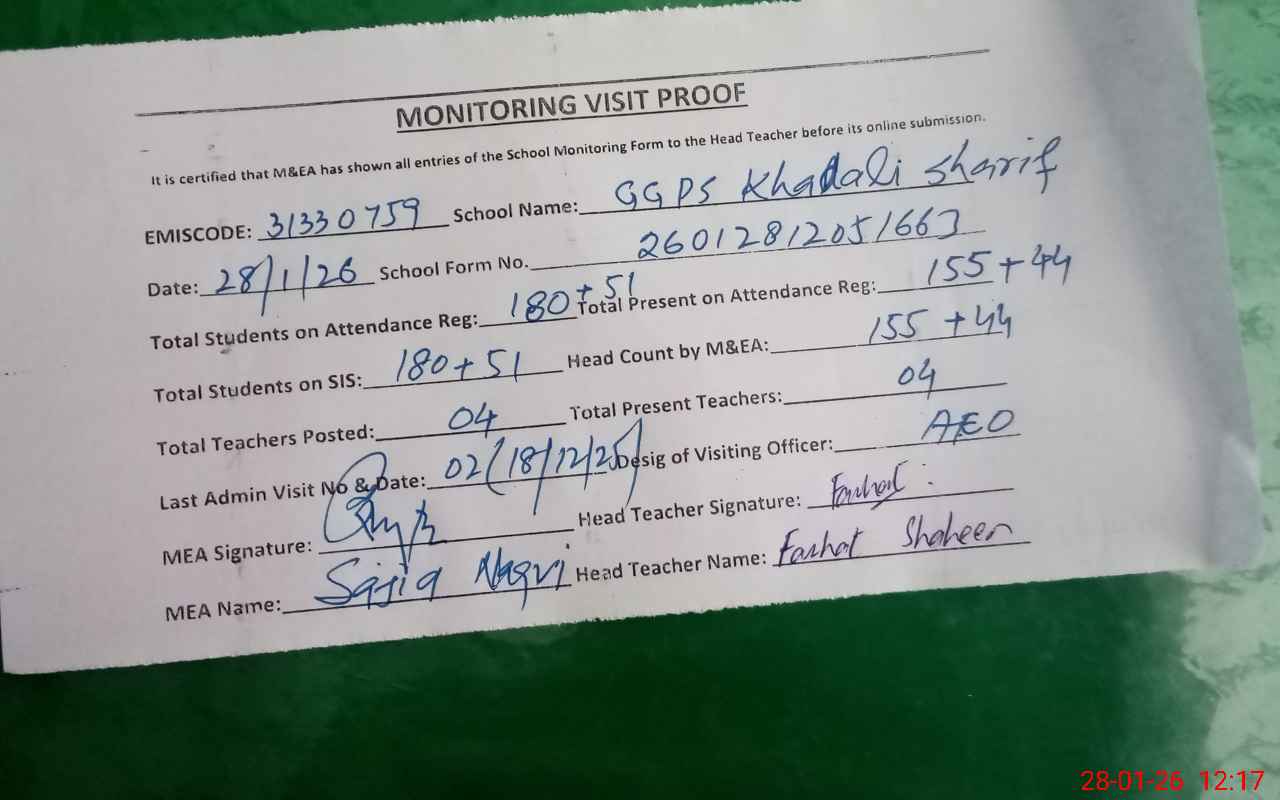 MONITORING VISIT PROOF
It is certified that M&EA has shown all entries of the School Monitoring Form to the Head Teacher before its online submission.
EMISCODE: 31330759 School Name: GGPS Khadali Sharif
Date: 28/1/26 School Form No. 26012812051663
Total Students on Attendance Reg: 180+51 Total Present on Attendance Reg: 155+44
Total Students on SIS: 180+51 Head Count by M&EA: 155+44
Total Teachers Posted: 04 Total Present Teachers: 04
Last Admin Visit No & Date: 02(18/12/25) Desig of Visiting Officer: AEO
MEA Signature: Head Teacher Signature: Farhat
MEA Name: Sajia Naqvi Head Teacher Name: Farhat Shaheen
28-01-26 12:17